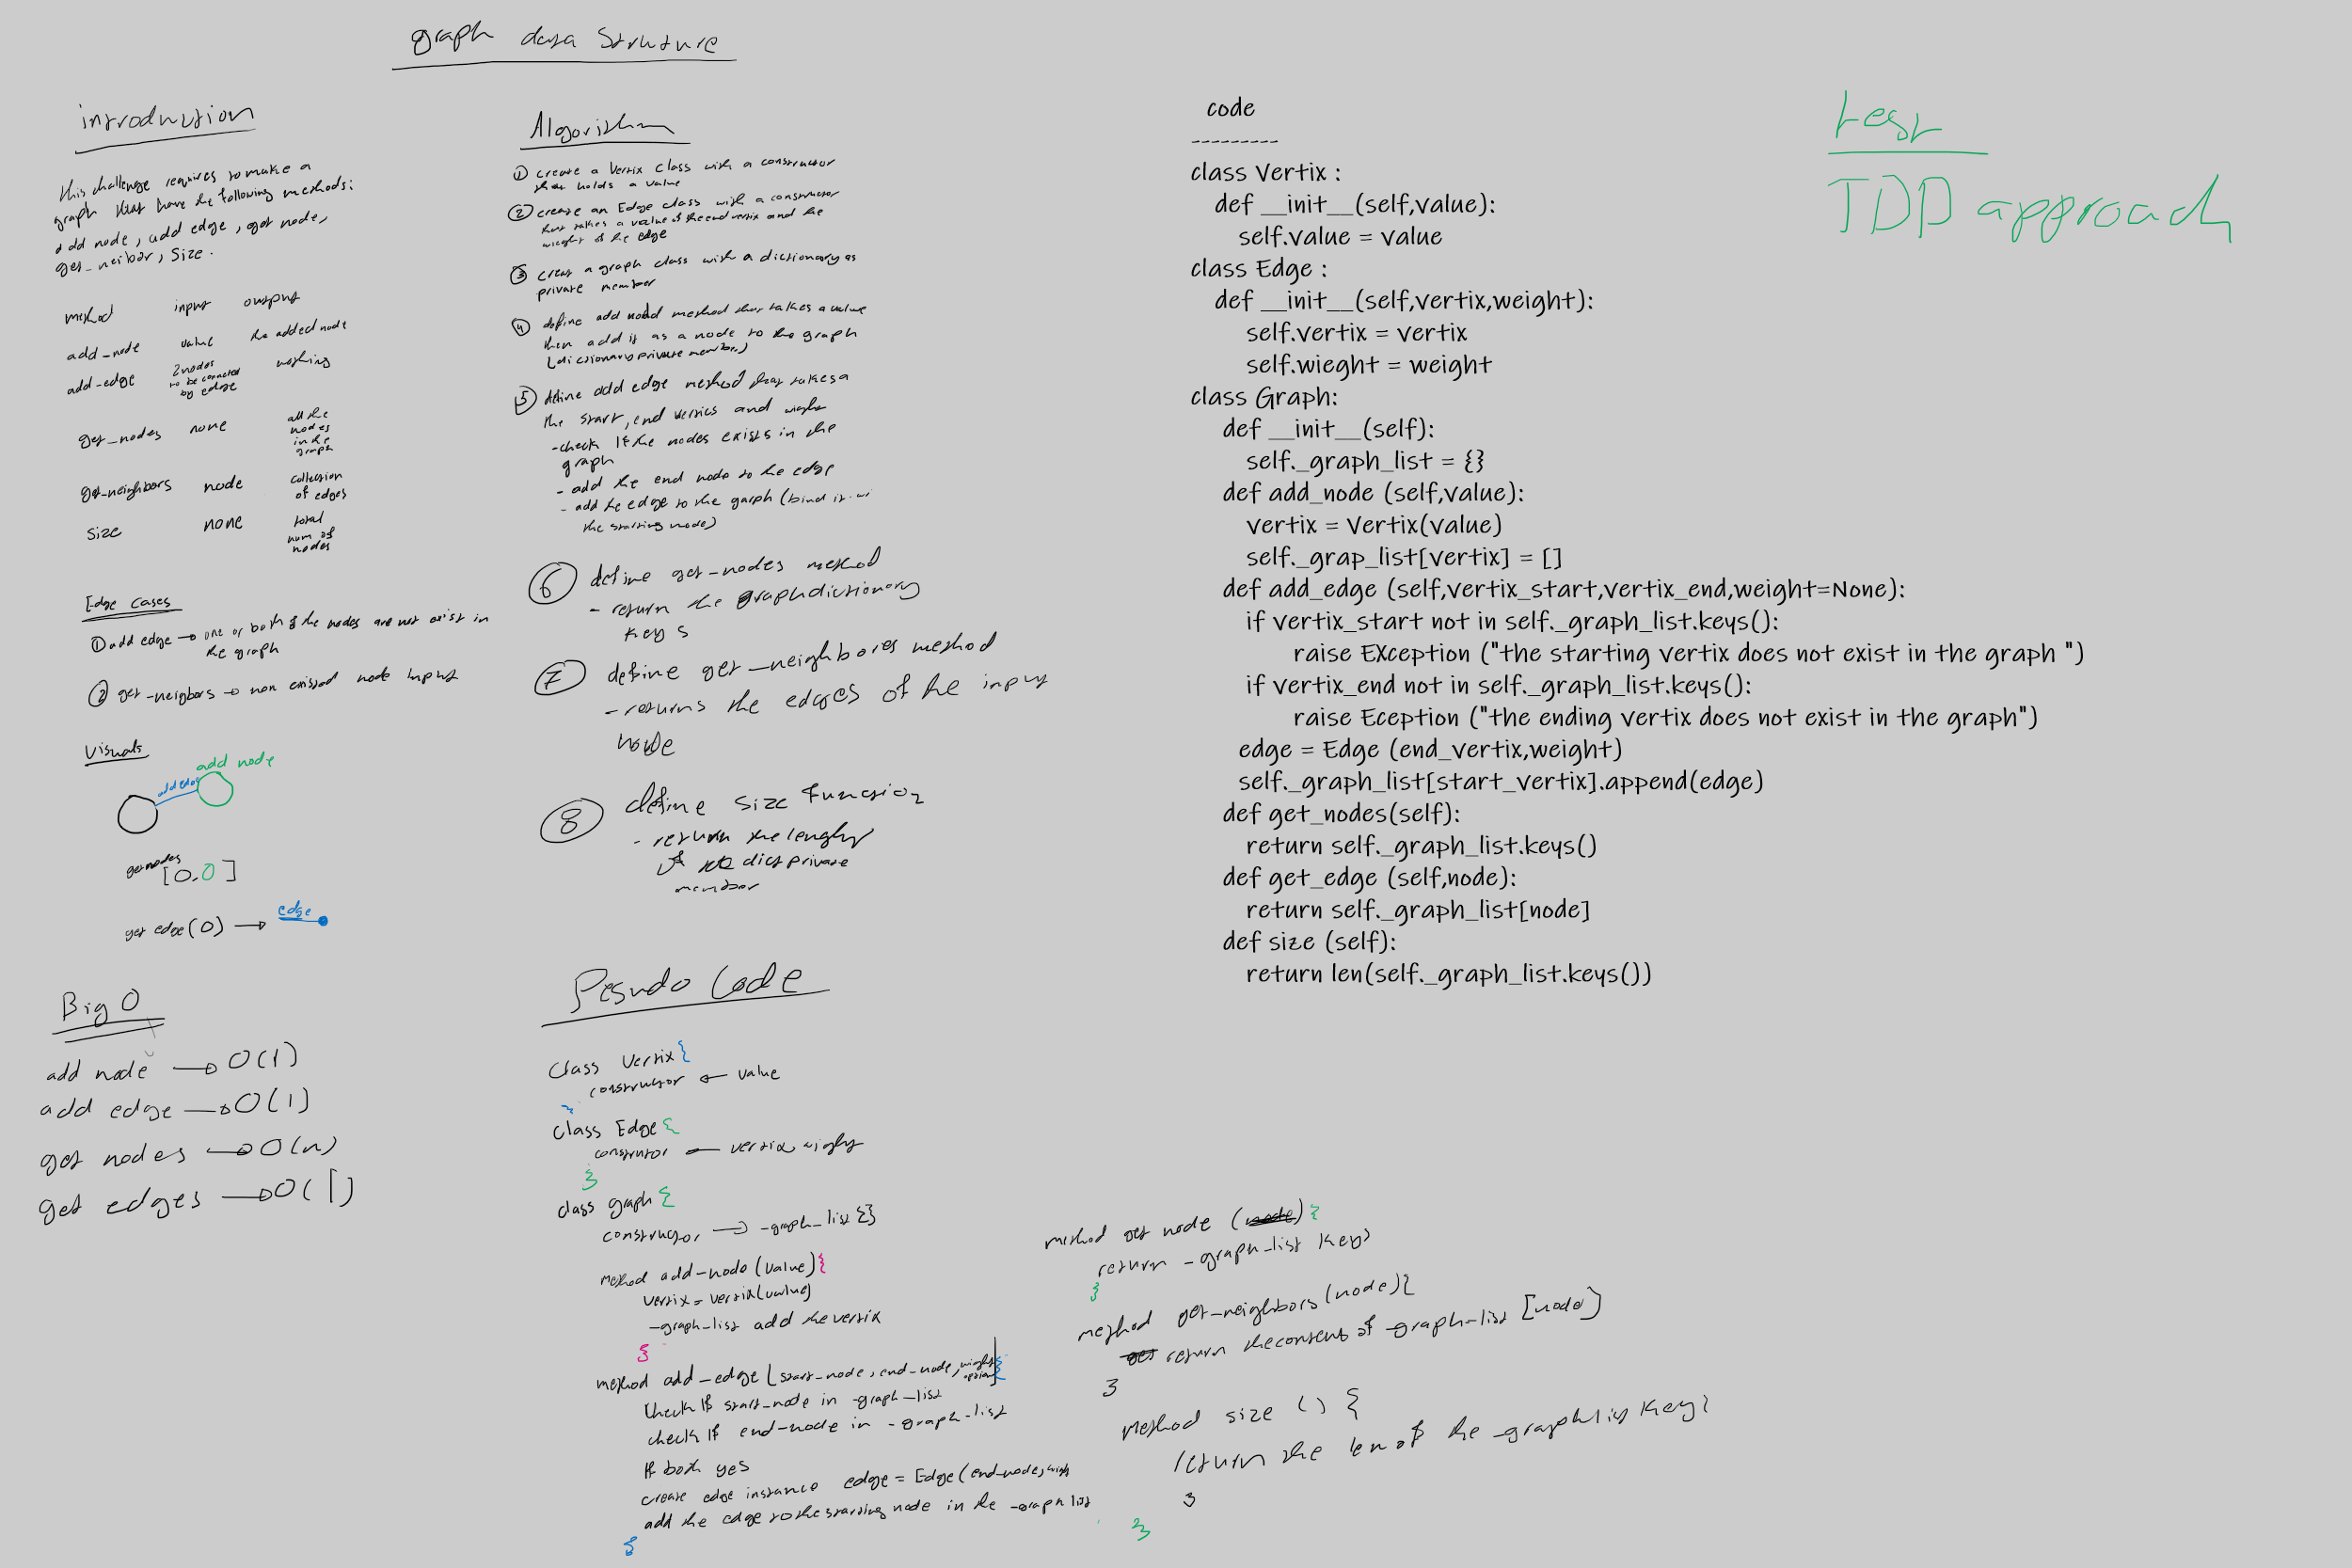 graph data Struture
introduction
this challenge requires to make a
graph that have the following methods:
add node, add edge, get node,
get_neibor, size.
method input output
add_node value the added node
add-edge 2nodes to be connected by edge nothing
get_nodes none all the nodes in the graph
get-neighbors node collection of edges
size none total num of nodes
Edge Cases
① add edge → one or both of the nodes are not exist in
the graph
② get-neigbors → non existed node input
Visuals
add node
add edge
get nodes
[O,O]
get edge(O) → edge
Big O
add node → O(1)
add edge → O(1)
get nodes → O(n)
get edges → O(1)
Algorithm
① create a Vertix class with a constructor
that holds a value
② create an Edge class with a constructor
that takes a value of the end vertix and the
wieght of the edge
③ creat a graph class with a dictionary as
private member
④ define add node method that takes a value
then add it as a node to the graph
(dictionary private member)
⑤ define add edge method that takes a
the start, end vertics and wight
-check if the nodes exists in the
graph
- add the end node to the edge
- add the edge to the garph (bind it wi
the starting node)
⑥ define get-nodes method
- return the graph dictionary
keys
⑦ define get_neighbores method
- returns the edges of the input
node
⑧ define size function
- return the lenght
of the dict private
member
Pesudo Code
Class Vertix{
constructor ← value
}
class Edge{
constrotor ← vertix, wight
}
class graph{
constructor → -graph_list {}
method add-node (value){
vertix = vertix(value)
-graph-list add the vertix
}
method add_edge (start_node, end-node, wight option){
check if start-node in -graph-list
check if end-node in -graph-list
If both yes
create edge instance edge = Edge(end-node, wigh
add the edge to the starting node in the -graph list
}
method get node (node){
return -graph-list keys
}
method get-neighbors(node){
get return the content of -graph-list [node]
}
method size () {
return the len of the -graph list keys
}
}
code
---------
class Vertix :
def __init__(self,value):
self.value = value
class Edge :
def __init__(self,vertix,weight):
self.vertix = vertix
self.wieght = weight
class Graph:
def __init__(self):
self._graph_list = {}
def add_node (self,value):
vertix = Vertix(value)
self._grap_list[vertix] = []
def add_edge (self,vertix_start,vertix_end,weight=None):
if vertix_start not in self._graph_list.keys():
raise EXception ("the starting vertix does not exist in the graph ")
if vertix_end not in self._graph_list.keys():
raise Eception ("the ending vertix does not exist in the graph")
edge = Edge (end_vertix,weight)
self._graph_list[start_vertix].append(edge)
def get_nodes(self):
return self._graph_list.keys()
def get_edge (self,node):
return self._graph_list[node]
def size (self):
return len(self._graph_list.keys())
test
TDD approach